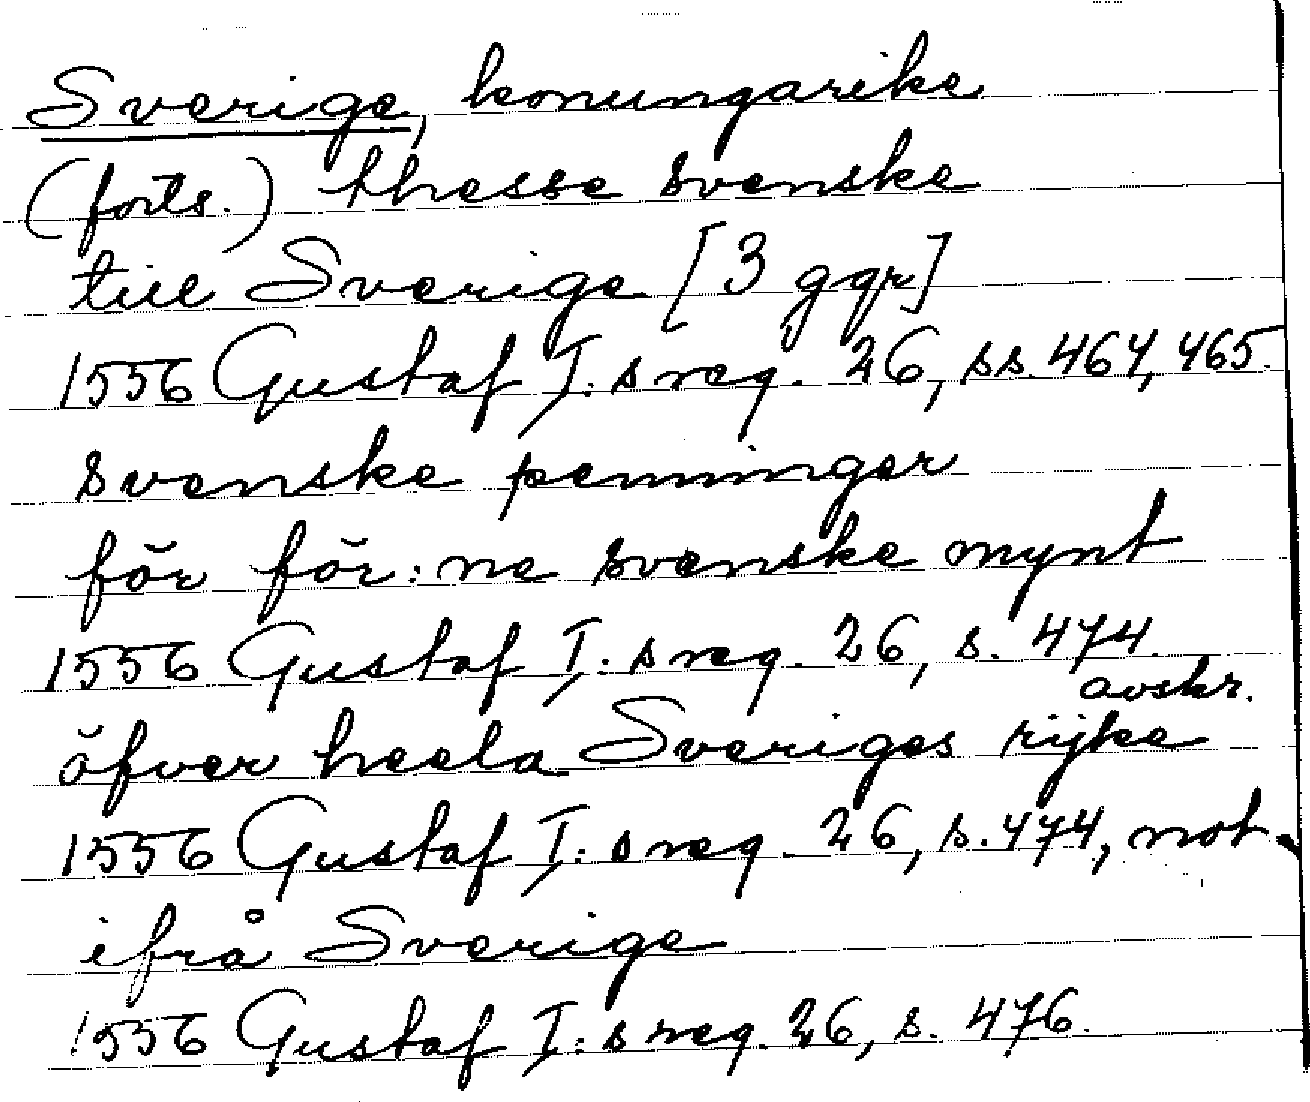 Sverige, konungarike
(forts.) thesse svenske
till Sverige [3 ggr]
1556 Gustaf I:s reg. 26, ss. 464, 465.
svenske penninger
för för:ne svenske mynt
1556 Gustaf I:s reg. 26, s. 474.
avskr.
öfver heela Sveriges rijke
1556 Gustaf I:s reg. 26, s. 474, not.
ifrå Sverige
1556 Gustaf I:s reg. 26, s. 476.